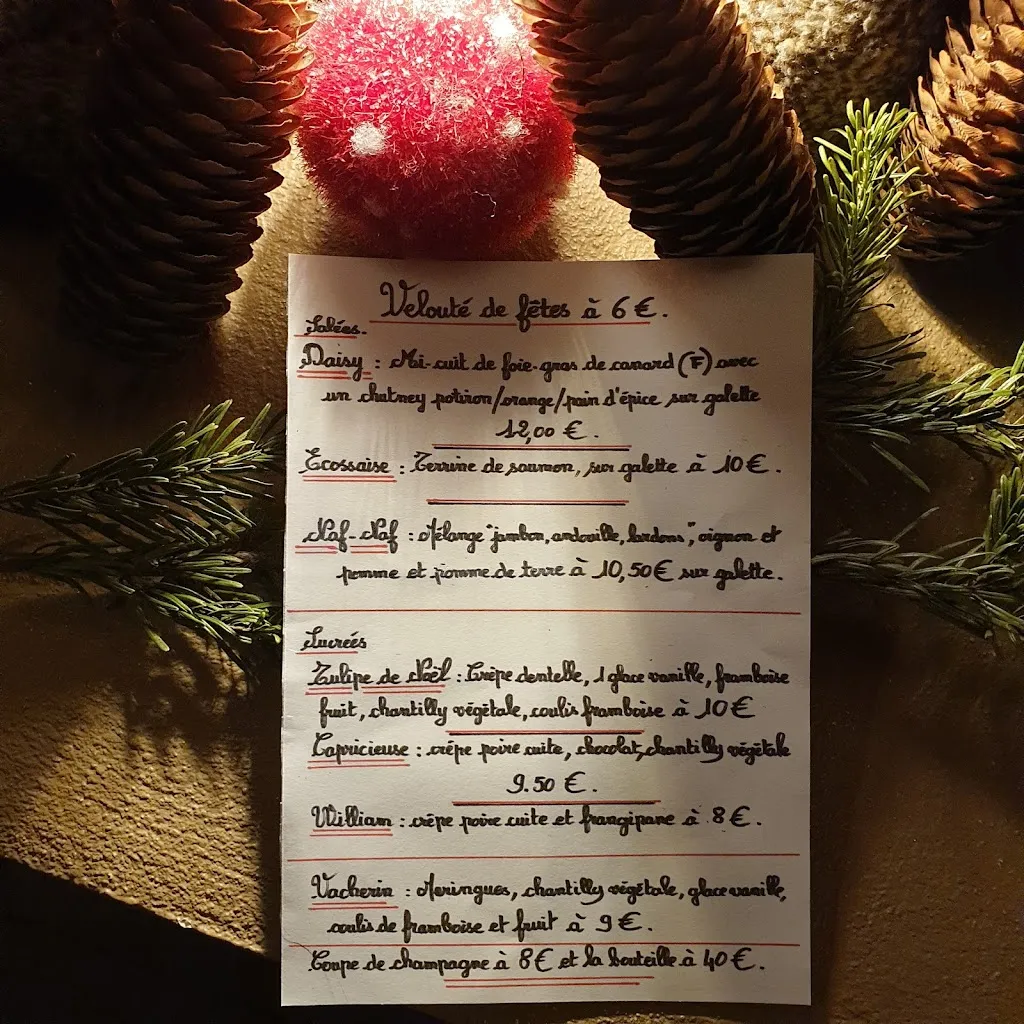 Velouté de fêtes à 6 €.
Salées.
Daisy : Mi-cuit de foie-gras de canard (F) avec
un chutney potiron/orange/pain d'épice sur galette
12,00 €.
Ecossaise : Terrine de saumon, sur galette à 10 €.
Naf-Naf : Mélange "jambon, andouille, lardons", oignon et
pomme et pomme de terre à 10,50 € sur galette.
Sucrées
Tulipe de Noël : Crêpe dentelle, 1 glace vanille, framboise
fruit, chantilly végétale, coulis framboise à 10 €
Capricieuse : crêpe poire cuite, chocolat, chantilly végétale
9.50 €.
William : crêpe poire cuite et frangipane à 8 €.
Vacherin : Meringues, chantilly végétale, glace vanille,
coulis de framboise et fruit à 9 €.
Coupe de champagne à 8 € et la bouteille à 40 €.